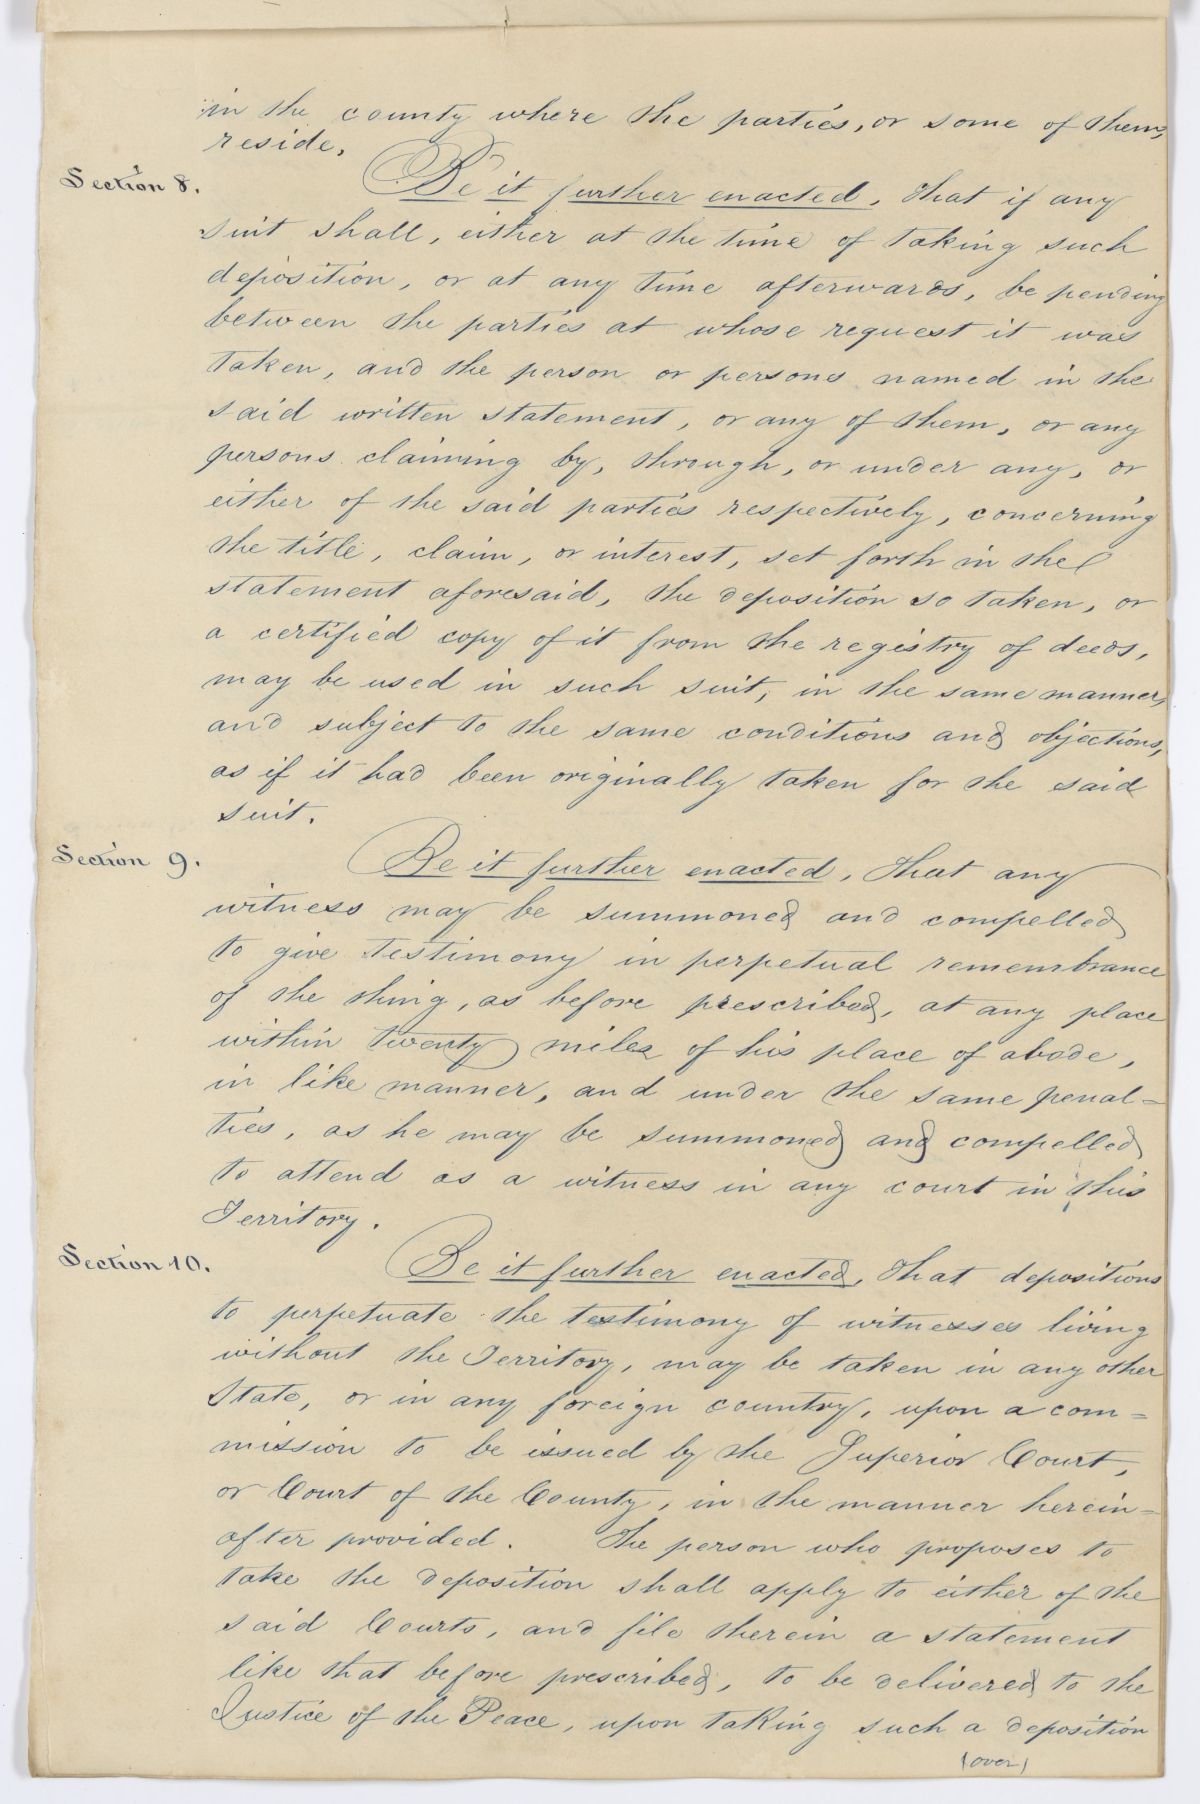 in the county where the parties, or some of them,
reside.
Section 8.
Be it further enacted, that if any
suit shall, either at the time of taking such
deposition, or at any time afterwards, be pending
between the parties at whose request it was
taken, and the person or persons named in the
said written statement, or any of them, or any
persons claiming by, through, or under any, or
either of the said parties respectively, concerning
the title, claim, or interest, set forth in the
statement aforesaid, the deposition so taken, or
a certified copy of it from the registry of deeds,
may be used in such suit, in the same manner,
and subject to the same conditions and objections,
as if it had been originally taken for the said
suit.
Section 9.
Be it further enacted, that any
witness may be summoned and compelled
to give testimony in perpetual remembrance
of the thing, as before prescribed, at any place
within twenty miles of his place of abode,
in like manner, and under the same penal=
ties, as he may be summoned and compelled
to attend as a witness in any court in this
Territory.
Section 10.
Be it further enacted, that depositions
to perpetuate the testimony of witnesses living
without the Territory, may be taken in any other
State, or in any foreign country, upon a com=
mission to be issued by the Superior Court,
or Court of the County, in the manner herein=
after provided. The person who proposes to
take the deposition shall apply to either of the
said Courts, and file therein a statement
like that before prescribed, to be delivered to the
Justice of the Peace, upon taking such a deposition
(over)